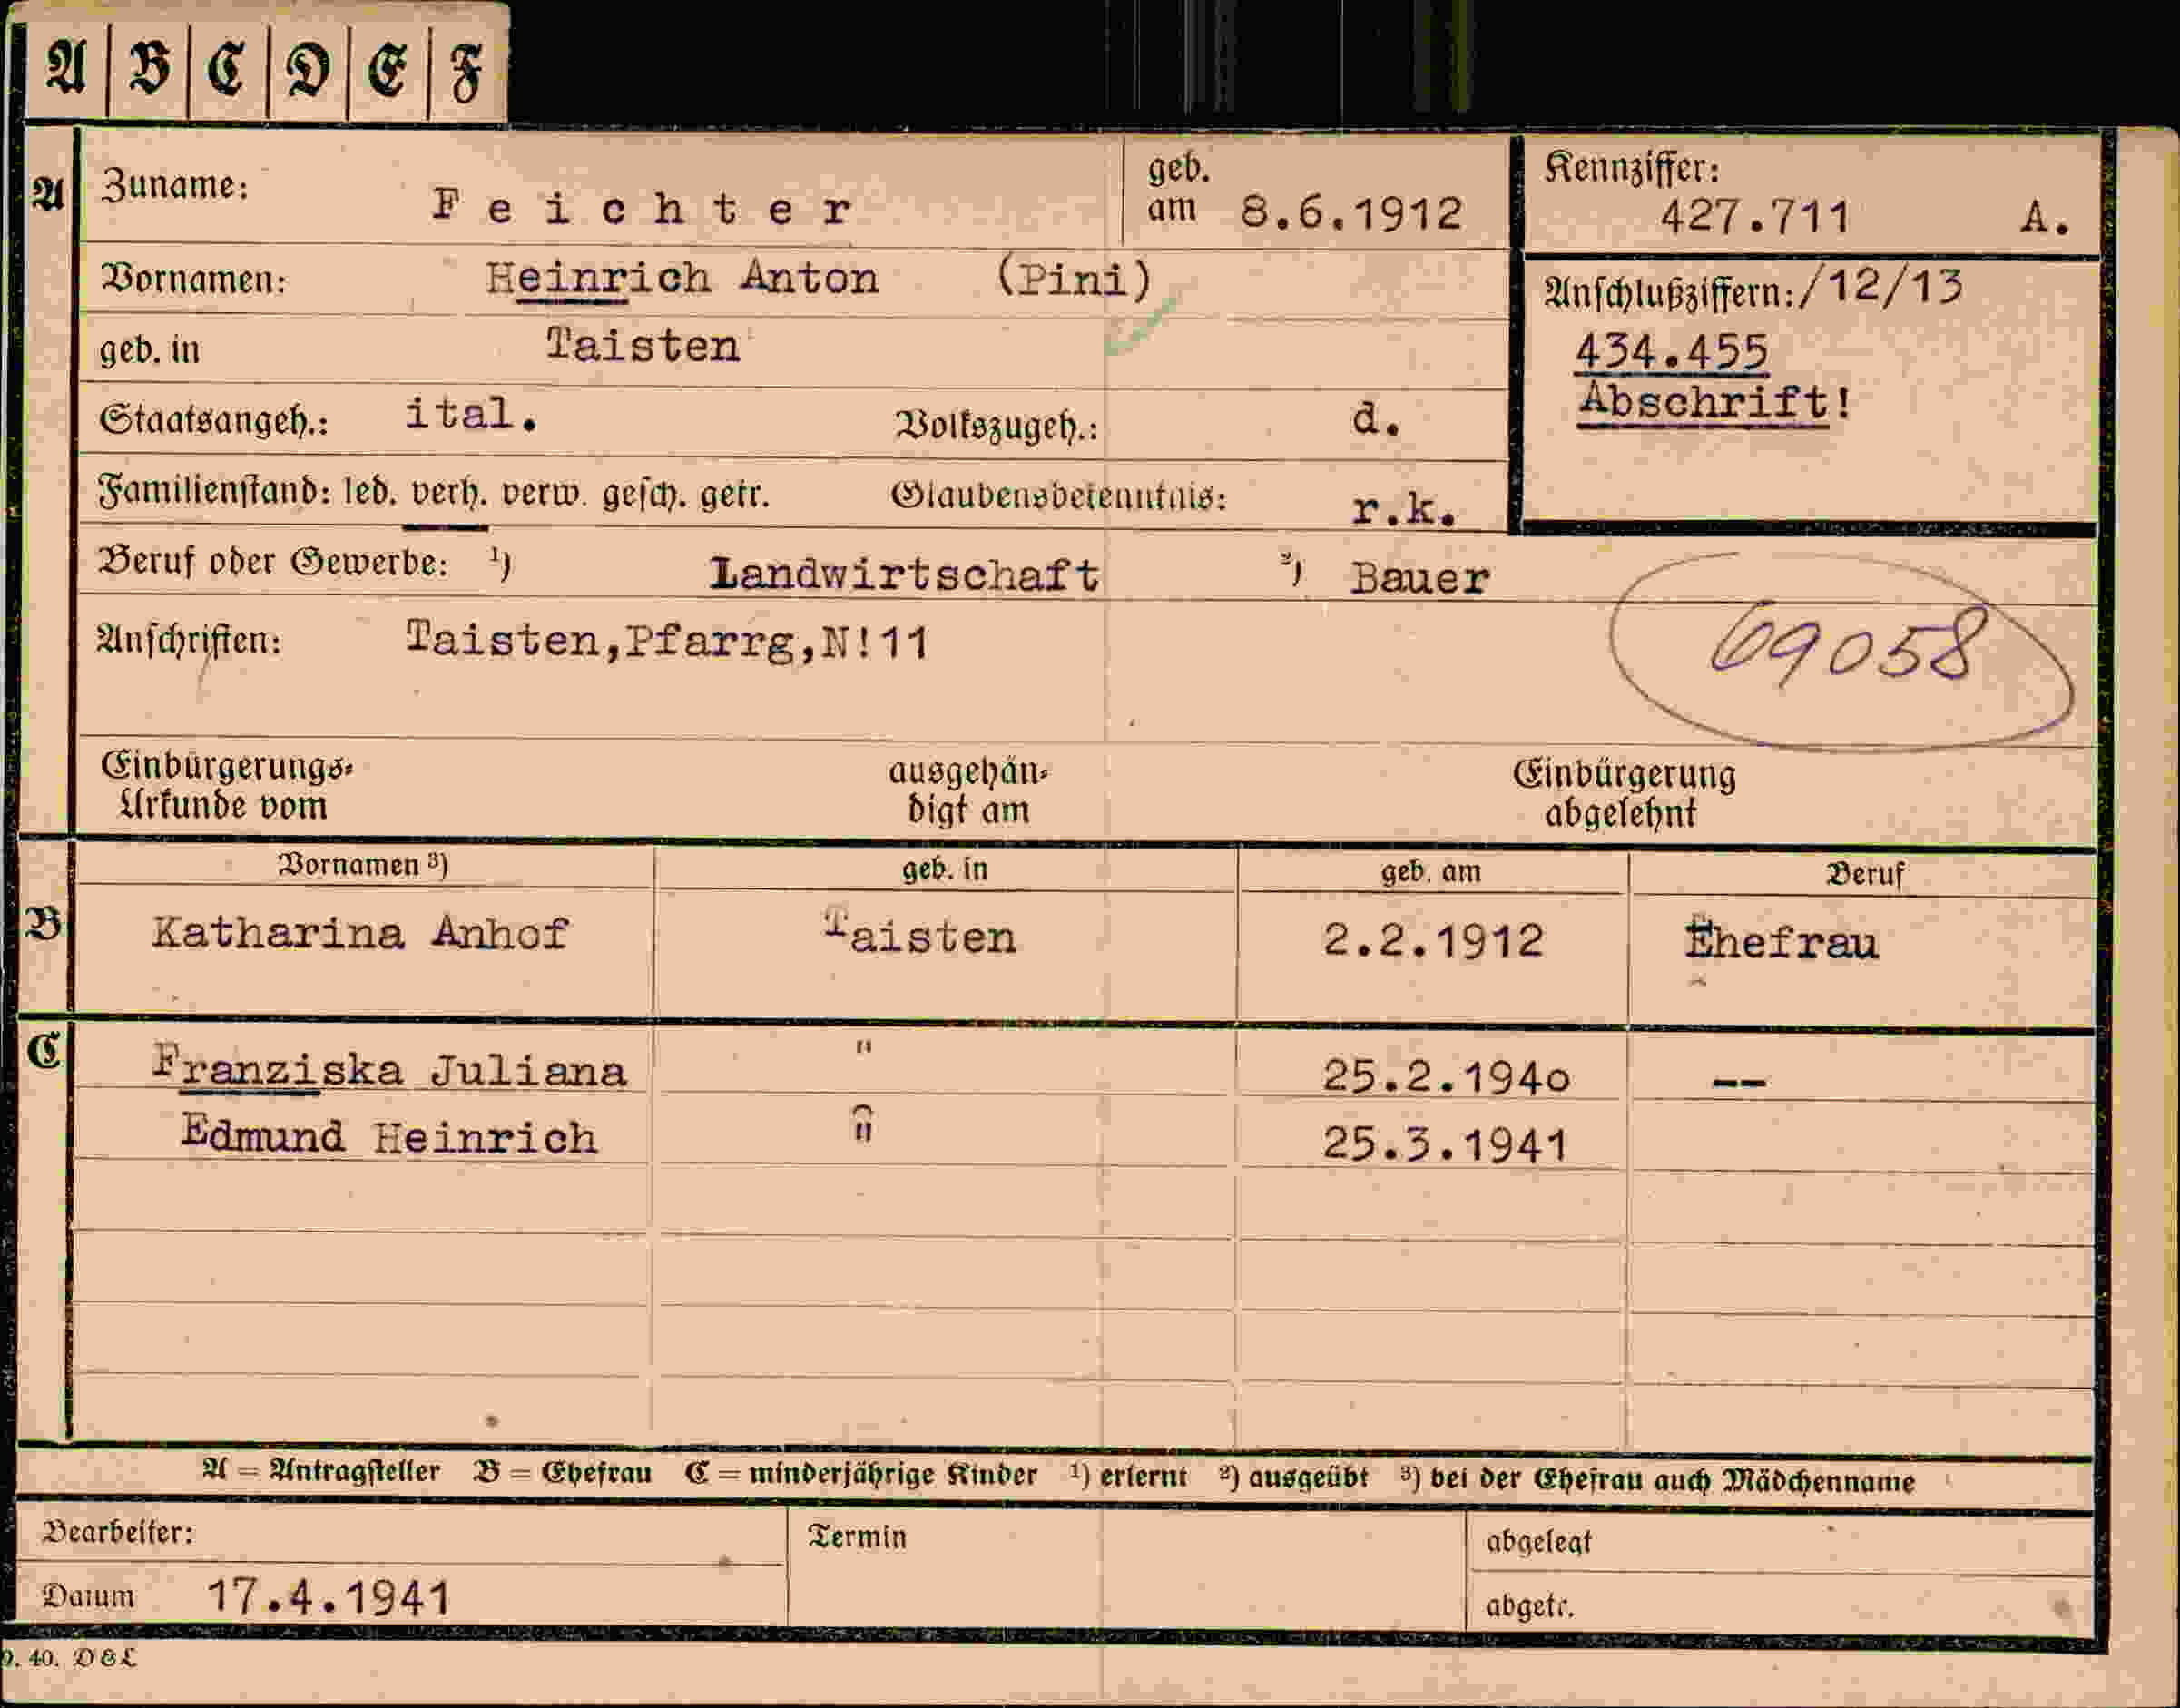 A B C D E F
A Zuname: Feichter geb. am 8.6.1912 Kennziffer: 427.711 A.
Vornamen: Heinrich Anton (Pini) Anschlußziffern: /12/13
geb. in Taisten 434.455
Abschrift!
Staatsangeh.: ital. Volkszugeh.: d.
Familienstand: led. verh. verw. gesch. getr. Glaubensbekenntnis: r.k.
Beruf oder Gewerbe: ¹) Landwirtschaft ²) Bauer
Anschriften: Taisten,Pfarrg,N!11
69058
Einbürgerungs-
Urkunde vom
ausgehän-
digt am
Einbürgerung
abgelehnt
Vornamen ³) geb. in geb. am Beruf
B Katharina Anhof Taisten 2.2.1912 Ehefrau
C Franziska Juliana " 25.2.194o --
Edmund Heinrich " 25.3.1941
A = Antragsteller B = Ehefrau C = minderjährige Kinder ¹) erlernt ²) ausgeübt ³) bei der Ehefrau auch Mädchenname
Bearbeiter: Termin abgelegt
Datum 17.4.1941 abgetr.
9. 40. D&L